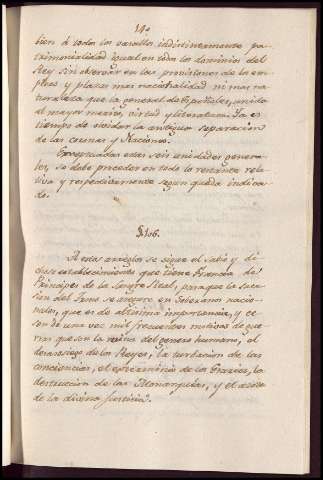 140
bien à todos los vasallos indistintamente pa-
trimonialidad igual en todos los dominios del
Rey sin observar en las provisiones de los em-
pleos y plazas mas nacionalidad ni mas na-
turaleza que la general de Españoles, unida
al mayor merito, virtud y literatura. Ya es
tiempo de olvidar la antigua separacion
de las Coronas y Naciones.
Exceptuadas estas seis unidades genera-
les, se debe proceder en todo lo restante rela-
tiva y respectivamente segun queda indica-
do.
§ 106.
A estos arreglos se sigue el sabio y di-
choso establecimiento que tiene Francia de
Principes de la Sangre Real, para que la suce-
sion del Trono se asegure en Soberanos nacio-
nales, que es de altisima importancia, y ce-
sen de una vez mil frecuentes motivos de gue-
rras que son la ruina del genero humano, el
desasosiego de los Reyes, la turbacion de las
conciencias, el exterminio de los Erarios, la
destruccion de las Monarquias, y el azote
de la divina Justicia.